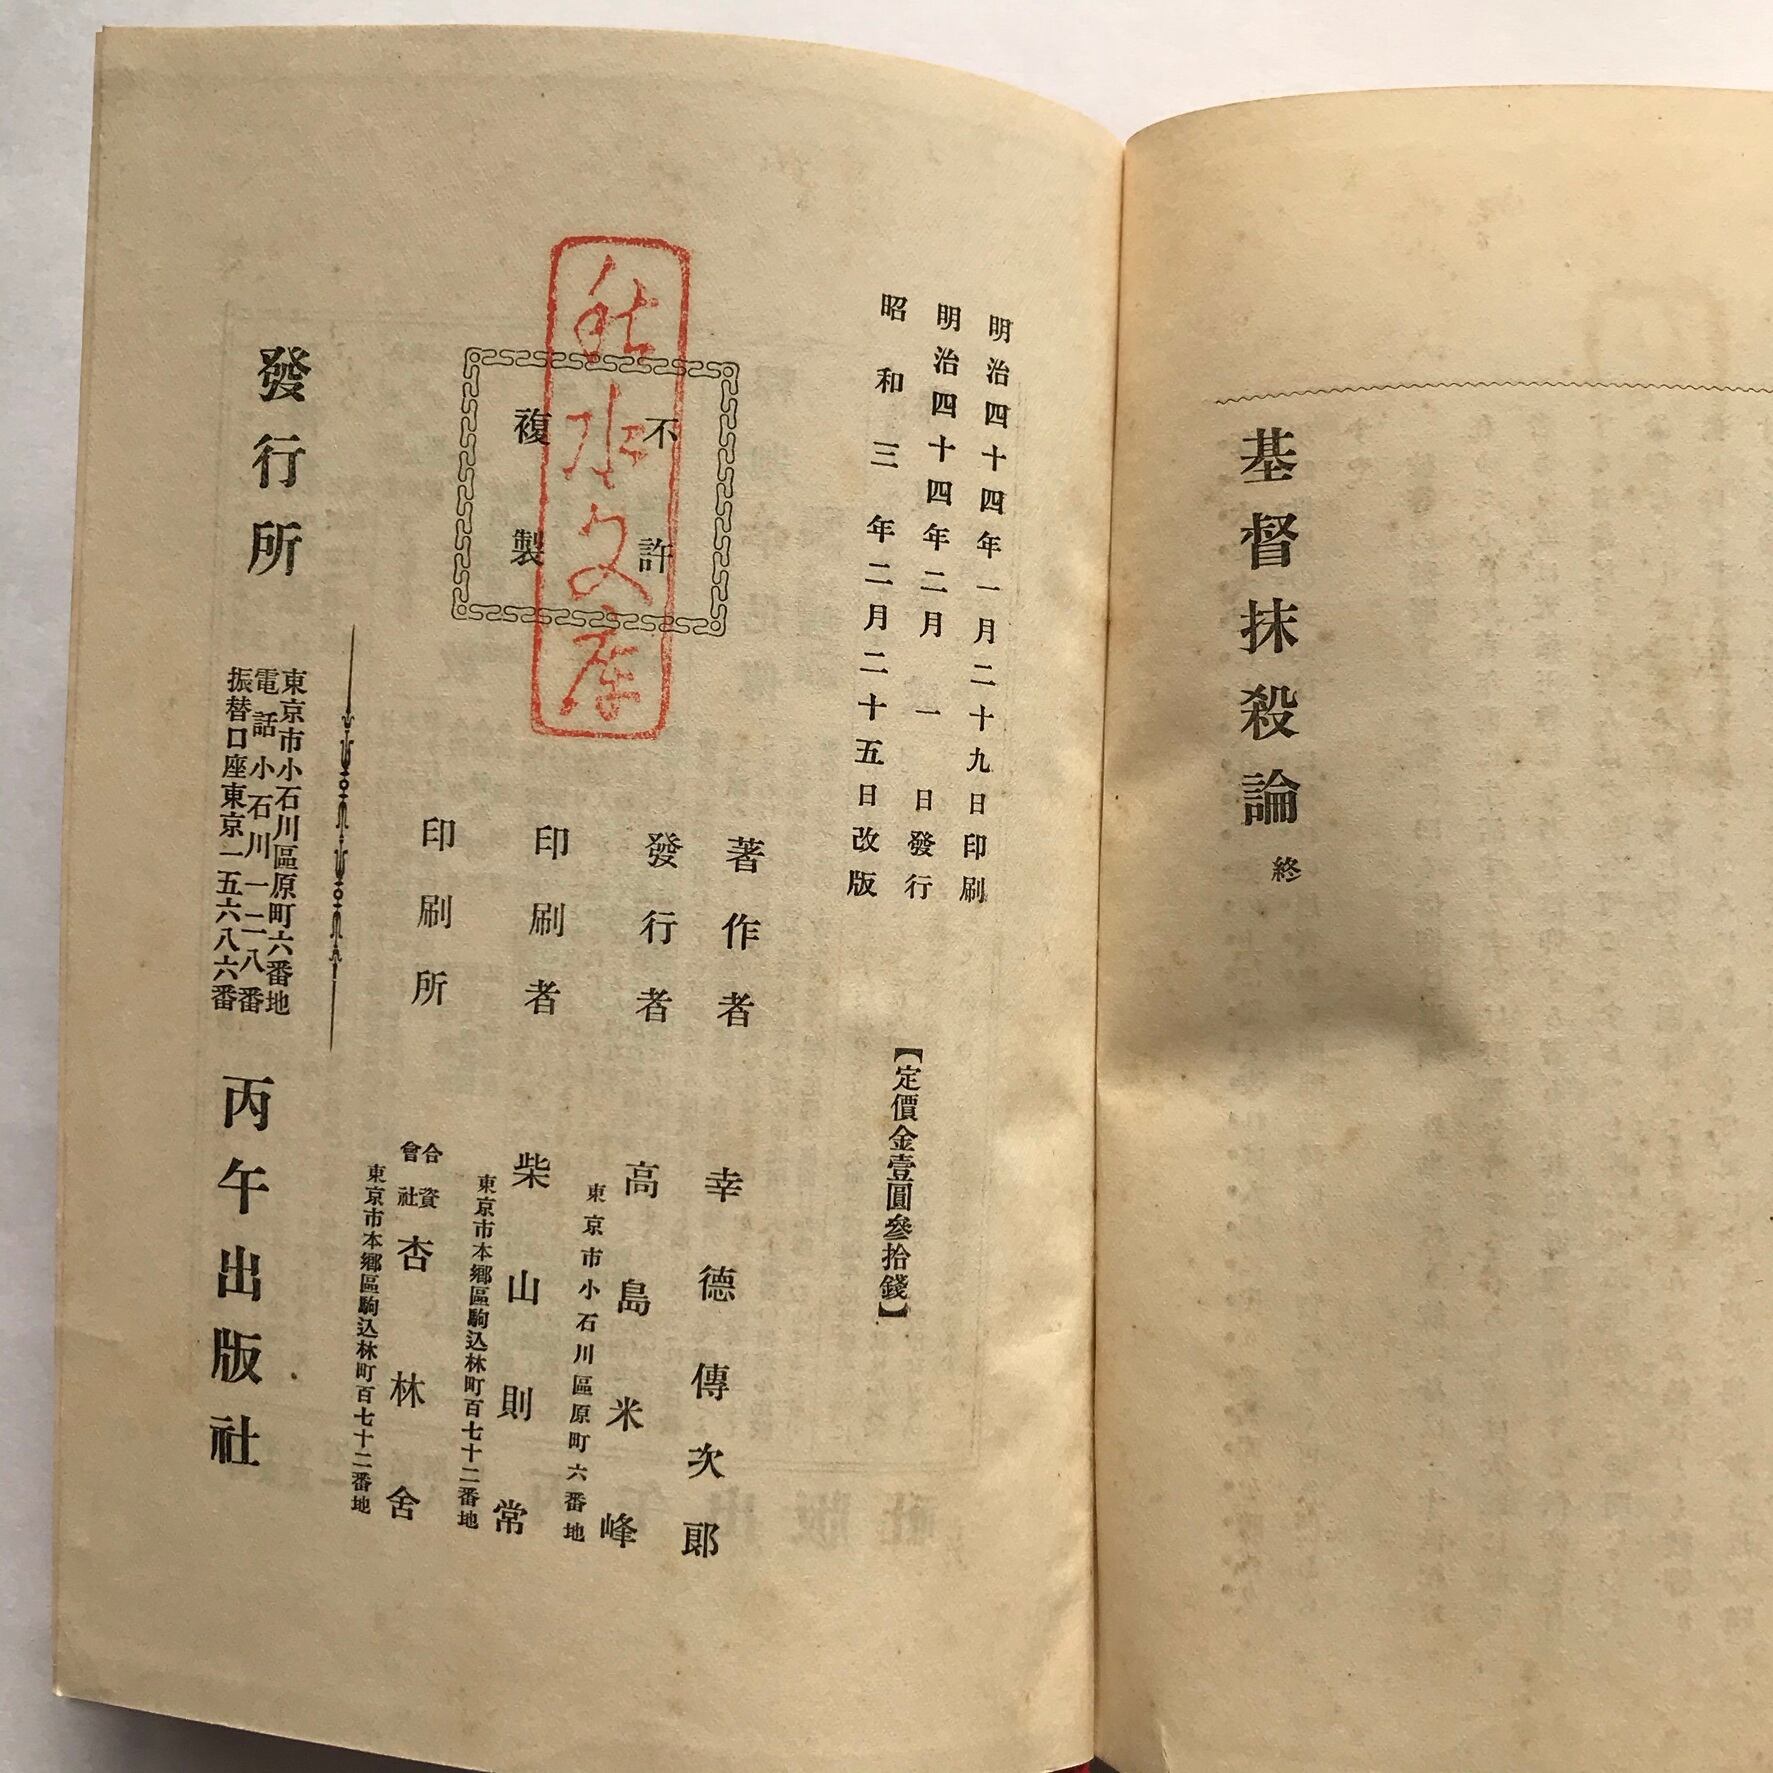 基督抹殺論 終
明治四十四年一月二十九日印刷
明治四十四年二月一日發行
昭和三年二月二十五日改版
【定價金壹圓參拾錢】
著作者 幸德傳次郎
發行者 高島米峰
東京市小石川區原町六番地
印刷者 柴山則常
東京市本鄉區駒込林町百七十二番地
印刷所 合資會社 杏林舍
東京市本鄉區駒込林町百七十二番地
不許
複製
秋水文庫
發行所 丙午出版社
東京市小石川區原町六番地
電話小石川一二一八番
振替口座東京一五六八六番